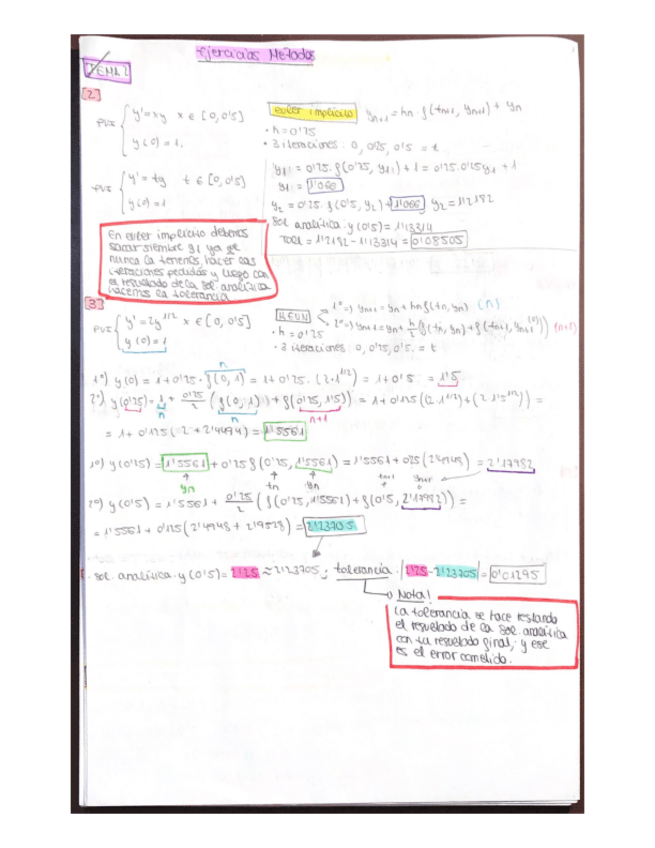 Ejercicios Métodos
TEMA 2
[2]
PVI { y'=xy x ∈ [0,0'5]
y(0)=1.
PVI { y'=ty t ∈ [0,0'5]
y(0)=1
Euler implícito y_{n+1} = hn · f(t_{n+1}, y_{n+1}) + yn
· h=0'25
· 3 iteraciones: 0, 0'25, 0'5 = t
y1 = 0'25 · f(0'25, y1) + 1 = 0'25 · 0'25 y1 + 1
y1 = 1'066
y2 = 0'25 · f(0'5, y2) + 1'066, y2 = 1'2182
Sol. analítica y(0'5) = 1'13314
Tol = 1'2182 - 1'13314 = 0'08505
En euler implícito debemos
sacar siempre y1 ya que
nunca la tenemos, hacer las
iteraciones pedidas y luego con
el resultado de la sol. analítica
hacemos la tolerancia
[3]
PVI { y' = 2y^{1/2} x ∈ [0,0'5]
y(0)=1
HEUN
1º=) y_{n+1} = yn + hn f(tn, yn) (n)
2º=) y_{n+1} = yn + h/2 (f(tn, yn) + f(t_{n+1}, y_{n+1}^{(0)})) (n+1)
· h=0'25
· 3 iteraciones: 0, 0'25, 0'5. = t
n
1º) y(0) = 1 + 0'25 · f(0,1) = 1+0'25 · (2·1^{1/2}) = 1+0'5 = 1'5
2º) y(0'25) = 1 + 0'25/2 (f(0,1) + f(0'25, 1'5)) = 1+0'125 (2·1^{1/2}) + (2·1'5^{1/2}) =
n n n+1
= 1+ 0'125 (2 + 2'4494) = 1'5561
1º) y(0'25) = 1'5561 + 0'25 f(0'25, 1'5561) = 1'5561 + 0'25 (2'4948) = 2'17982
yn tn yn t_{n+1} y_{n+1}
2º) y(0'5) = 1'5561 + 0'25/2 (f(0'25, 1'5561) + f(0'5, 2'17982)) =
= 1'5561 + 0'125 (2'4948 + 2'9528) = 2'23705
· sol. analítica y(0'5) = 2'25 ≈ 2'23705; tolerancia · |2'25-2'23705| = 0'01295
Nota!
La tolerancia se hace restando
el resultado de la sol. analítica
con tu resultado final, y ese
es el error cometido.